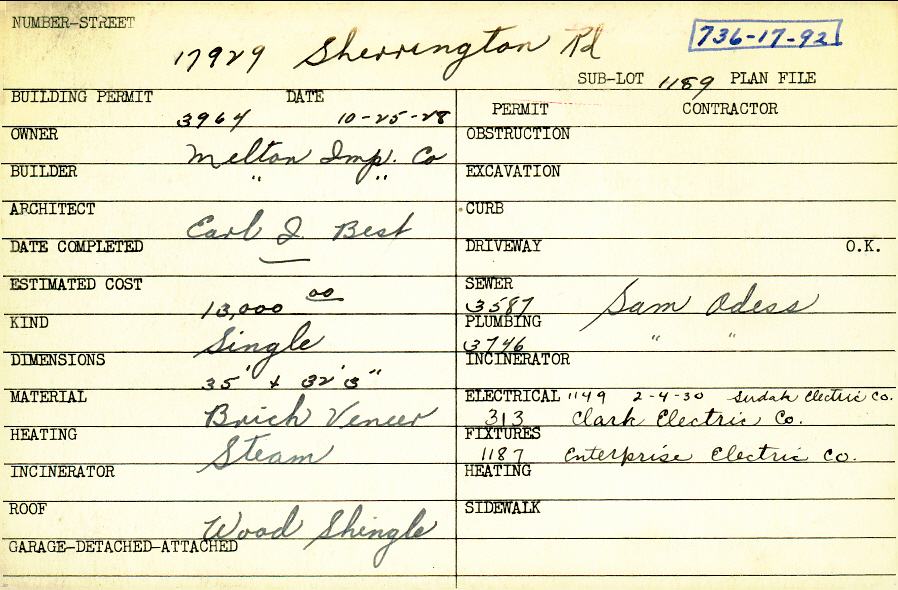 NUMBER-STREET
17929 Sherrington Rd 736-17-92
SUB-LOT 1189 PLAN FILE
BUILDING PERMIT DATE
3964 10-25-28
PERMIT CONTRACTOR
OWNER
Melton Imp. Co
OBSTRUCTION
BUILDER
" "
EXCAVATION
ARCHITECT
Carl J. Best
CURB
DATE COMPLETED
—
DRIVEWAY O.K.
ESTIMATED COST
13,000 00
SEWER
3587 Sam Odess
KIND
Single
PLUMBING
3746 " "
DIMENSIONS
35' + 32' 3"
INCINERATOR
MATERIAL
Brick Veneer
ELECTRICAL 1149 2-4-30 Electric Co.
313 Clark Electric Co.
HEATING
Steam
FIXTURES
1187 Enterprise Electric Co.
INCINERATOR
HEATING
ROOF
Wood Shingle
SIDEWALK
GARAGE-DETACHED-ATTACHED